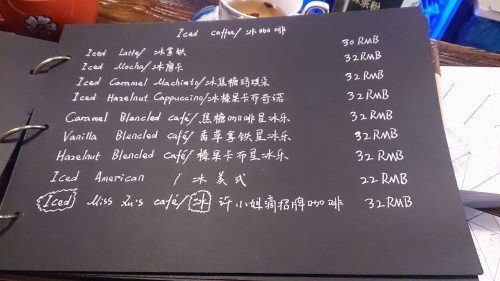 Iced coffee/冰咖啡
Iced Latte/冰拿铁 30 RMB
Iced Mocha/冰摩卡 32 RMB
Iced Caramel Machiato/冰焦糖玛琪朵 32 RMB
Iced Hazelnut Cappuccino/冰榛果卡布奇诺 32 RMB
Caramel Blencled café/焦糖咖啡星冰乐 32 RMB
Vanilla Blencled café/香草拿铁星冰乐 32 RMB
Hazelnut Blencled café/榛果卡布星冰乐 32 RMB
Iced American /冰美式 22 RMB
Iced Miss Xu's café/冰 许小姐滴招牌咖啡 32 RMB